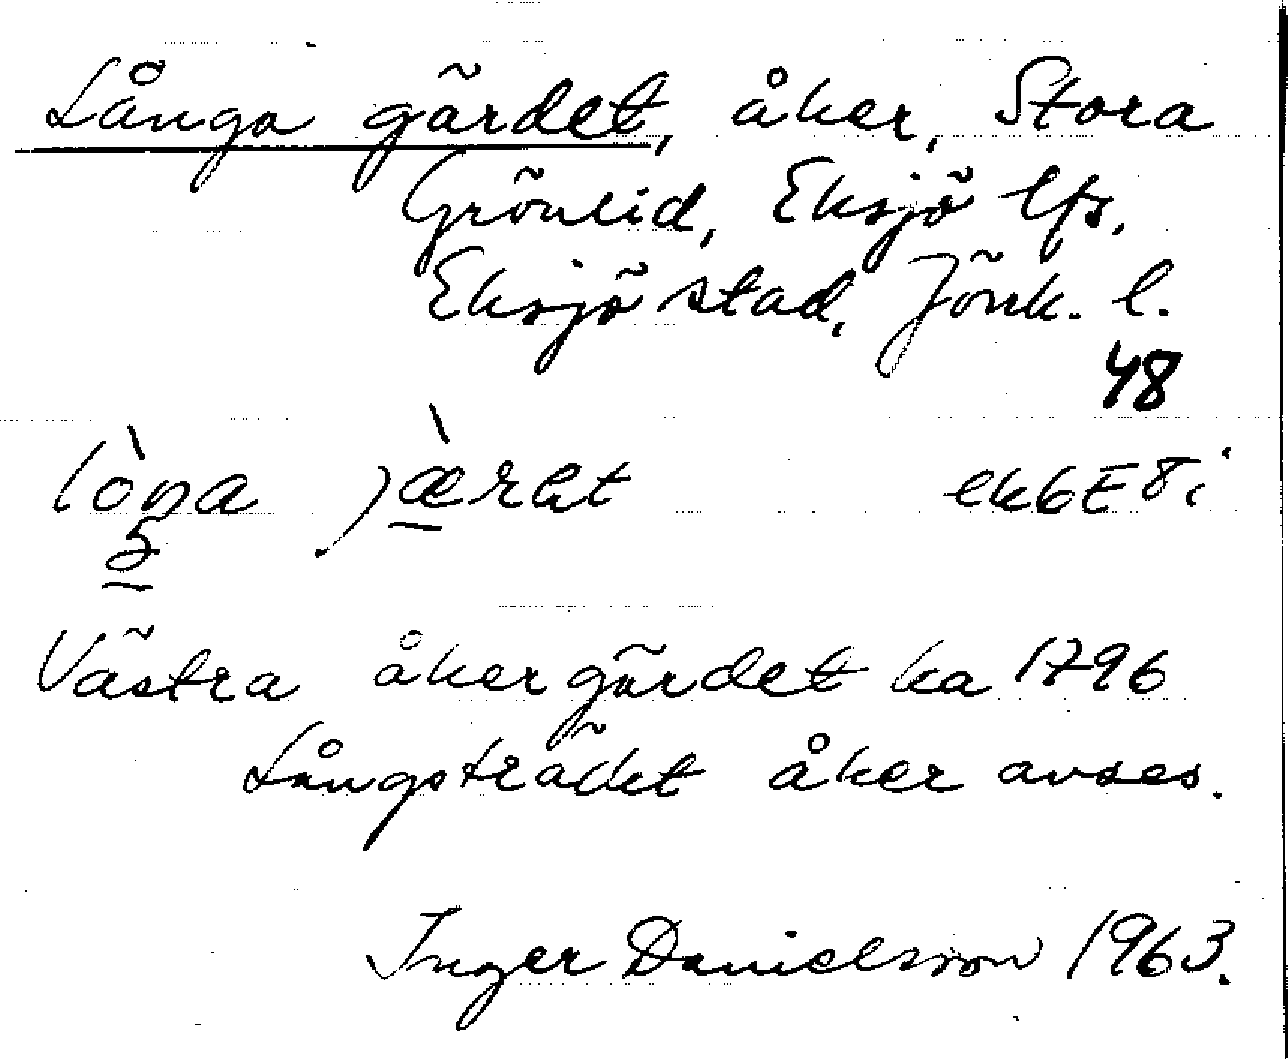 Långa gärdet, åker, Stora
Grönlid, Eksjö lfs.
Eksjö stad, Jönk. l.
48
lòŋa jæ̀rdət ekbE8i
Västra åkergärdet ka 1796
Långsträckt åker avses.
Inger Danielsson 1963.